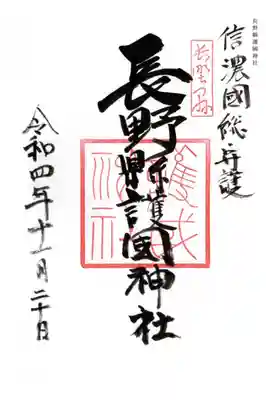 長野縣護國神社
信濃國総守護
長野縣護國神社
令和四年十一月二十日